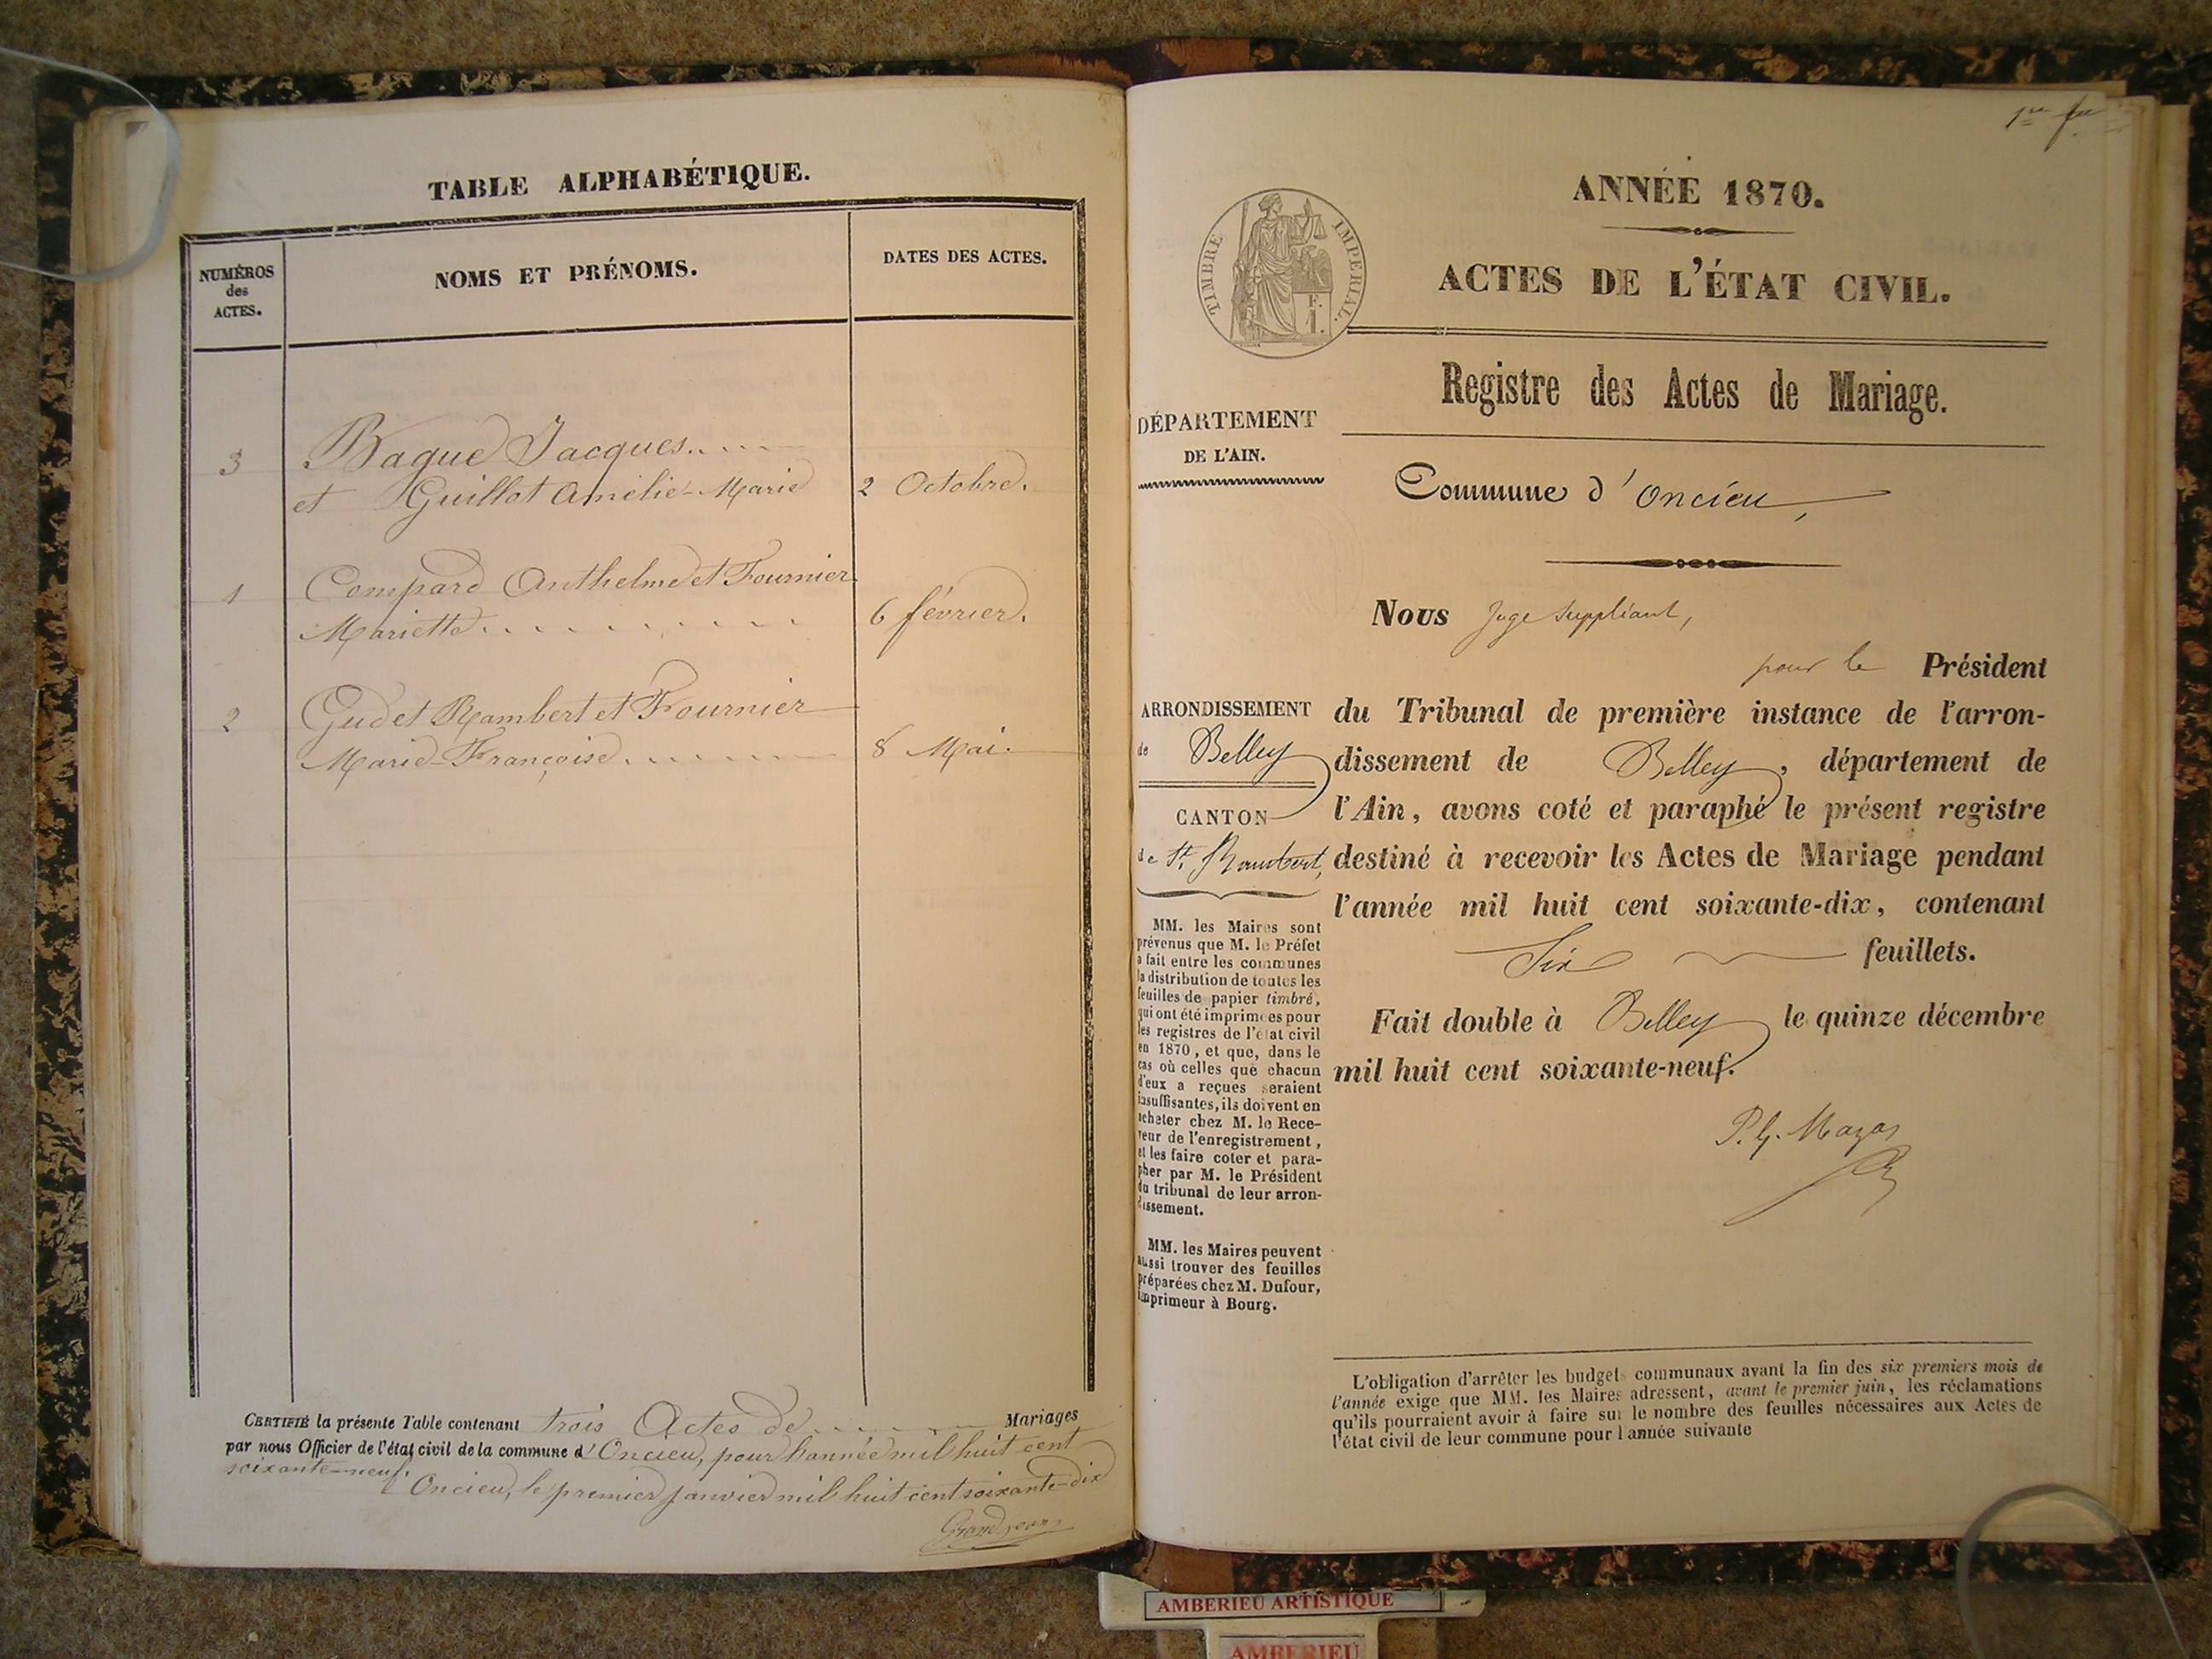 TABLE ALPHABÉTIQUE.
NUMÉROS
des
ACTES.
NOMS ET PRÉNOMS.
DATES DES ACTES.
3 Bague Jacques
et Guillot Amélie-Marie 2 Octobre.
1 Compard Anthelme et Fournier
Mariette 6 février.
2 Gudet Rambert et Fournier
Marie-Françoise 8 Mai.
CERTIFIÉ la présente Table contenant trois Actes de Mariages
par nous Officier de l'état civil de la commune d'Oncieu, pour l'année mil huit cent
soixante-neuf.
Oncieu, le premier janvier mil huit cent soixante-dix
Grandjean
1re fle
ANNÉE 1870.
TIMBRE IMPERIAL.
F.
1.
ACTES DE L'ÉTAT CIVIL.
Registre des Actes de Mariage.
DÉPARTEMENT
DE L'AIN.
Commune d'Oncieu,
Nous Juge Suppléant,
pour le Président
du Tribunal de première instance de l'arron-
dissement de Belley, département de
l'Ain, avons coté et paraphé le présent registre
destiné à recevoir les Actes de Mariage pendant
l'année mil huit cent soixante-dix, contenant
Six feuillets.
Fait double à Belley le quinze décembre
mil huit cent soixante-neuf.
P. G. Mazas
ARRONDISSEMENT
de Belley
CANTON
de St Rambert,
MM. les Maires sont
prévenus que M. le Préfet
a fait entre les communes
la distribution de toutes les
feuilles de papier timbré,
qui ont été imprimées pour
les registres de l'état civil
en 1870, et que, dans le
cas où celles que chacun
d'eux a reçues seraient
insuffisantes, ils doivent en
acheter chez M. le Rece-
veur de l'enregistrement,
et les faire coter et para-
pher par M. le Président
du tribunal de leur arron-
dissement.
MM. les Maires peuvent
aussi trouver des feuilles
préparées chez M. Dufour,
imprimeur à Bourg.
L'obligation d'arrêter les budgets communaux avant la fin des six premiers mois de
l'année exige que MM. les Maires adressent, avant le premier juin, les réclamations
qu'ils pourraient avoir à faire sur le nombre des feuilles nécessaires aux Actes de
l'état civil de leur commune pour l'année suivante
AMBERIEU ARTISTIQUE
AMBERIEU